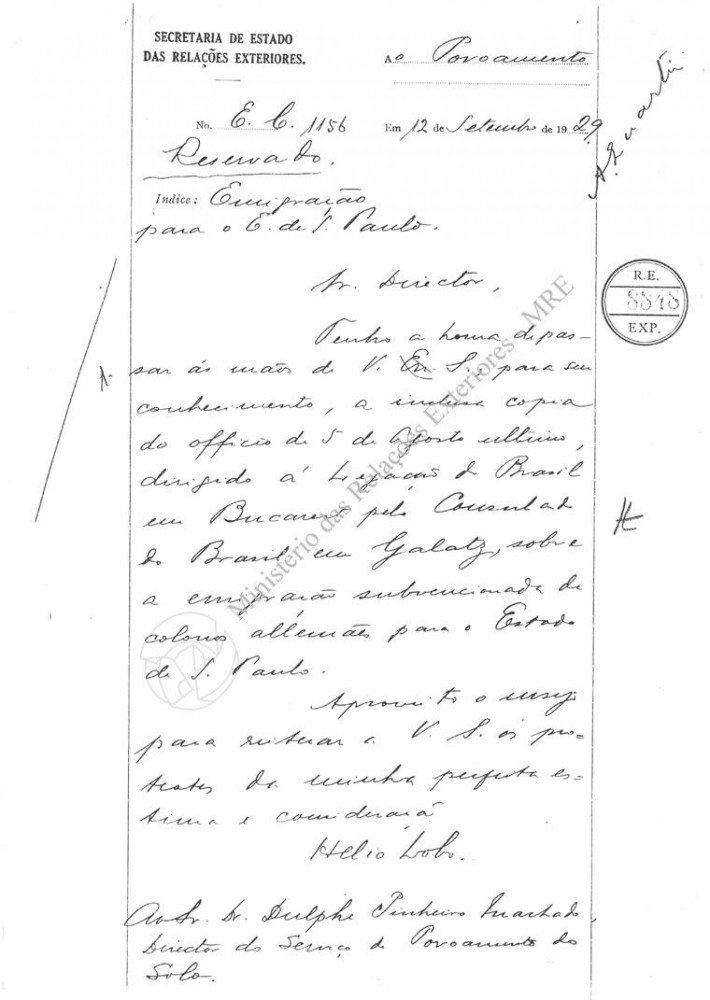 SECRETARIA DE ESTADO
DAS RELAÇÕES EXTERIORES.
Ao Povoamento
No. E. C. 1156
Em 12 de Setembro de 1929.
Reservado.
Indice: Emigração
para o E. de S. Paulo.
Sr. Director,
Tenho a honra de pas-
sar ás mãos de V. S., para seu
conhecimento, a inclusa copia
do officio de 5 de Agosto ultimo,
dirigido á Legação do Brasil
em Bucarest pelo Consulado
do Brasil em Galatz, sobre
a emigração subvencionada de
colonos allemães para o Estado
de S. Paulo.
Aproveito o ensejo
para reiterar a V. S. os pro-
testos da minha perfeita es-
tima e consideração
Helio Lobo.
Ao Sr. Dr. Dulphe Pinheiro Machado,
Director do Serviço de Povoamento do
Solo.
R.E.
8848
EXP.
Ministério das Relações Exteriores - MRE